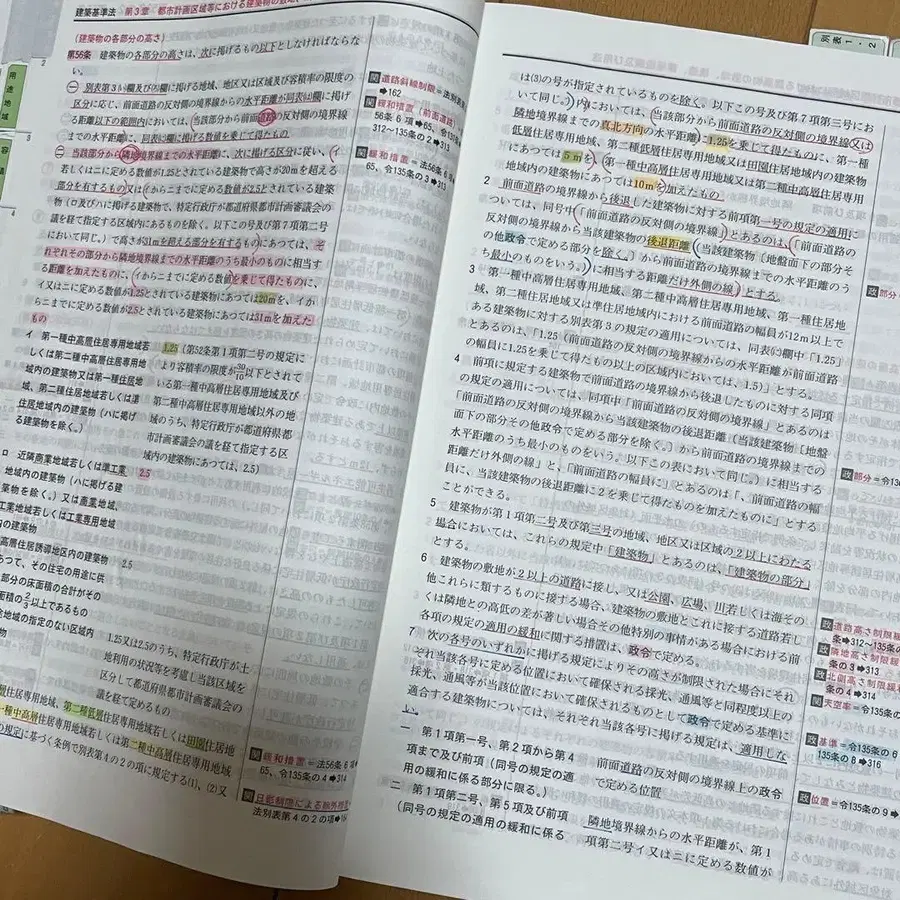 建築基準法 第3章 都市計画区域等における建築物の敷地、
(建築物の各部分の高さ)
第56条 建築物の各部分の高さは、次に掲げるもの以下としなければならな
い。
一 別表第3(い)欄及び(ろ)欄に掲げる地域、地区又は区域及び容積率の限度の
区分に応じ、前面道路の反対側の境界線からの水平距離が同表(は)欄に掲げ
る距離以下の範囲内においては、当該部分から前面道路の反対側の境界線
までの水平距離に、同表(に)欄に掲げる数値を乗じて得たもの
二 当該部分から隣地境界線までの水平距離に、次に掲げる区分に従い、イ
若しくはニに定める数値が1.25とされている建築物で高さが20mを超える
部分を有するもの又はイからニまでに定める数値が2.5とされている建築
物(ロ及びハに掲げる建築物で、特定行政庁が都道府県都市計画審議会の
議を経て指定する区域内にあるものを除く。以下この号及び第7項第二号に
おいて同じ。)で高さが31mを超える部分を有するものにあつては、そ
れぞれその部分から隣地境界線までの水平距離のうち最小のものに相当す
る距離を加えたものに、イからニまでに定める数値を乗じて得たものに、
イ又はニに定める数値が1.25とされている建築物にあつては20mを、イか
らニまでに定める数値が2.5とされている建築物にあつては31mを加えた
もの
イ 第一種中高層住居専用地域若 1.25(第52条第1項第二号の規定に
しくは第二種中高層住居専用地 より容積率の限度が30/10以下とされて
域内の建築物又は第一種住居地 いる第一種中高層住居専用地域及び
域、第二種住居地域若しくは準 中高層住居専用地域以外の地
住居地域内の建築物(ハに掲げ 域のうち、特定行政庁が都道府県都
る建築物を除く。) 市計画審議会の議を経て指定する区
域内の建築物にあつては、2.5)
ロ 近隣商業地域若しくは準工業 2.5
地域内の建築物(ハに掲げる建
築物を除く。)又は商業地域、
工業地域若しくは工業専用地域
内の建築物
高層住居誘導地区内の建築物 2.5
あつて、その住宅の用途に供
部分の床面積の合計がその
面積の2/3以上であるもの
地域の指定のない区域内 1.25又は2.5のうち、特定行政庁が土
物 地利用の状況等を考慮し当該区域を
区分して都道府県都市計画審議会の
議を経て定めるもの
住居専用地域、第二種低層住居専用地域若しくは田園住居地
一種中高層住居専用地域若しくは第二種中高層住居専用地域
の規定に基づく条例で別表第4の2の項に規定する(1)、(2)又
関 道路斜線制限=法別表
➡162
関 緩和措置(前面道路)
56条 6項➡65、令13
312~135条の2➡311
関 緩和措置=法56条 6項
65、令135条の3➡313
関 緩和措置=法56条 6項
65、令135条の4➡314
関 日影制限による
法別表第4の2の項➡
用途地域
容
別表1・2
は(3)の号が指定されているものを除く。以下この号及び第7項第三号にお
いて同じ。)内においては、当該部分から前面道路の反対側の境界線又は
隣地境界線までの真北方向の水平距離に1.25を乗じて得たものに、第一種
低層住居専用地域、第二種低層住居専用地域又は田園住居地域内の建築物
にあつては5mを、第一種中高層住居専用地域又は第二種中高層住居専用
地域内の建築物にあつては10mを加えたもの
2 前面道路の境界線から後退した建築物に対する前項第一号の規定の適用に
ついては、同号中「前面道路の反対側の境界線」とあるのは、「前面道路の
反対側の境界線から当該建築物の後退距離(当該建築物(地盤面下の部分そ
の他政令で定める部分を除く。)から前面道路の境界線までの水平距離のう
ち最小のものをいう。)に相当する距離だけ外側の線」とする。
3 第一種中高層住居専用地域、第二種中高層住居専用地域、第一種住居地
域、第二種住居地域又は準住居地域内における前面道路の幅員が12m以上で
ある建築物に対する別表第3の規定の適用については、同表(に)欄中「1.25」
とあるのは、「1.25(前面道路の反対側の境界線からの水平距離が前面道路
の幅員に1.25を乗じて得たもの以上の区域内においては、1.5)」とする。
4 前項に規定する建築物で前面道路の境界線から後退したものに対する同項
の規定の適用については、同項中「前面道路の反対側の境界線」とあるのは
「前面道路の反対側の境界線から当該建築物の後退距離(当該建築物(地盤
面下の部分その他政令で定める部分を除く。)から前面道路の境界線までの
水平距離のうち最小のものをいう。以下この表において同じ。)に相当する
距離だけ外側の線」と、「前面道路の幅員に」とあるのは「、前面道路の幅
員に、当該建築物の後退距離に2を乗じて得たものを加えたものに」とする
ことができる。
5 建築物が第1項第二号及び第三号の地域、地区又は区域の2以上にわたる
場合においては、これらの規定中「建築物」とあるのは、「建築物の部分」
とする。
6 建築物の敷地が2以上の道路に接し、又は公園、広場、川若しくは海その
他これらに類するものに接する場合、建築物の敷地とこれに接する道路若し
くは隣地との高低の差が著しい場合その他特別の事情がある場合における前
各項の規定の適用の緩和に関する措置は、政令で定める。
7 次の各号のいずれかに掲げる規定によりその高さが制限された場合にそれ
ぞれ当該各号に定める位置において確保される採光、通風等と同程度以上の
採光、通風等が当該位置において確保されるものとして政令で定める基準に
適合する建築物については、それぞれ当該各号に掲げる規定は、適用しな
い。
一 第1項第一号、第2項から第4 前面道路の反対側の境界線上の政令
項まで及び前項(同号の規定の適 で定める位置
用の緩和に係る部分に限る。)
二 第1項第二号、第5項及び前項 隣地境界線からの水平距離が、第1
(同号の規定の適用の緩和に係る 項第二号イ又はニに定める数値が
政 部分
政 部分=令13
政 道路高さ制限緩
条➡312~135条
政 隣地高さ制限緩
条の3➡313
政 北側高さ制限緩和
条の4➡314
関 天空率=令135条の
政 基準=令135条の6
135条の8➡316
政 位置=令135条の9➡